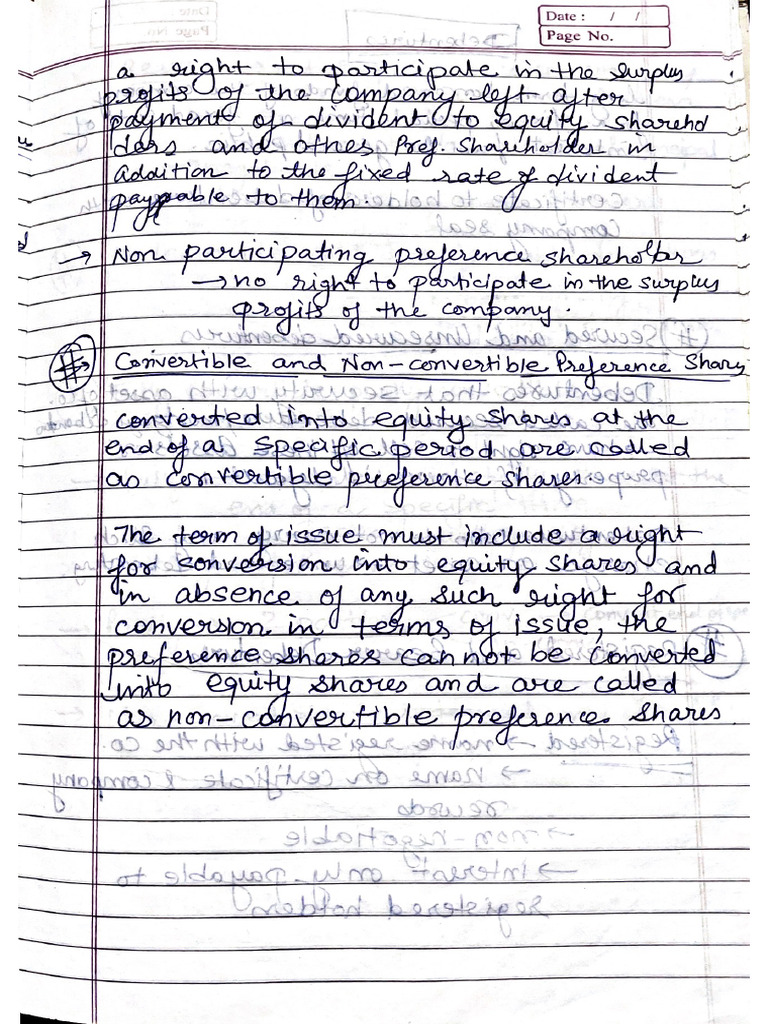 Date : / /
Page No.
a right to participate in the surplus
profits of the company left after
payment of divident to equity sharehd
ders and other Pref. Shareholder in
addition to the fixed rate of divident
payable to them.
→ Non participating preference shareholder
→ no right to participate in the surplus
profits of the company.
# Convertible and Non-convertible Preference Shares
converted into equity shares at the
end of a specific period are called
as convertible preference shares.
The term of issue must include a right
for conversion into equity shares and
in absence of any such right for
conversion in terms of issue, the
preference shares cannot be converted
into equity shares and are called
as non-convertible preference shares.